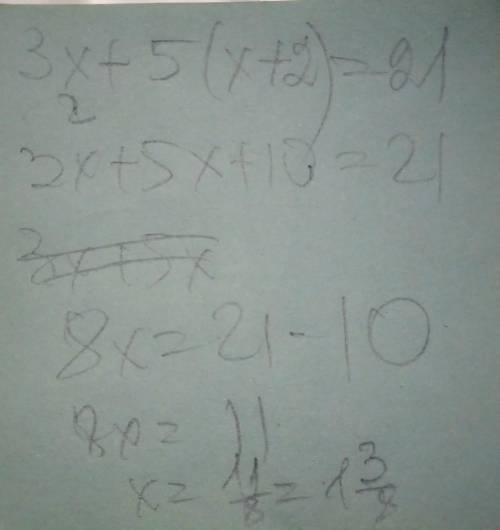 3x+5(x+2)=21
2
3x+5x+10=21
3x+5x
8x=21-10
8x=11
x=11/8=1 3/8